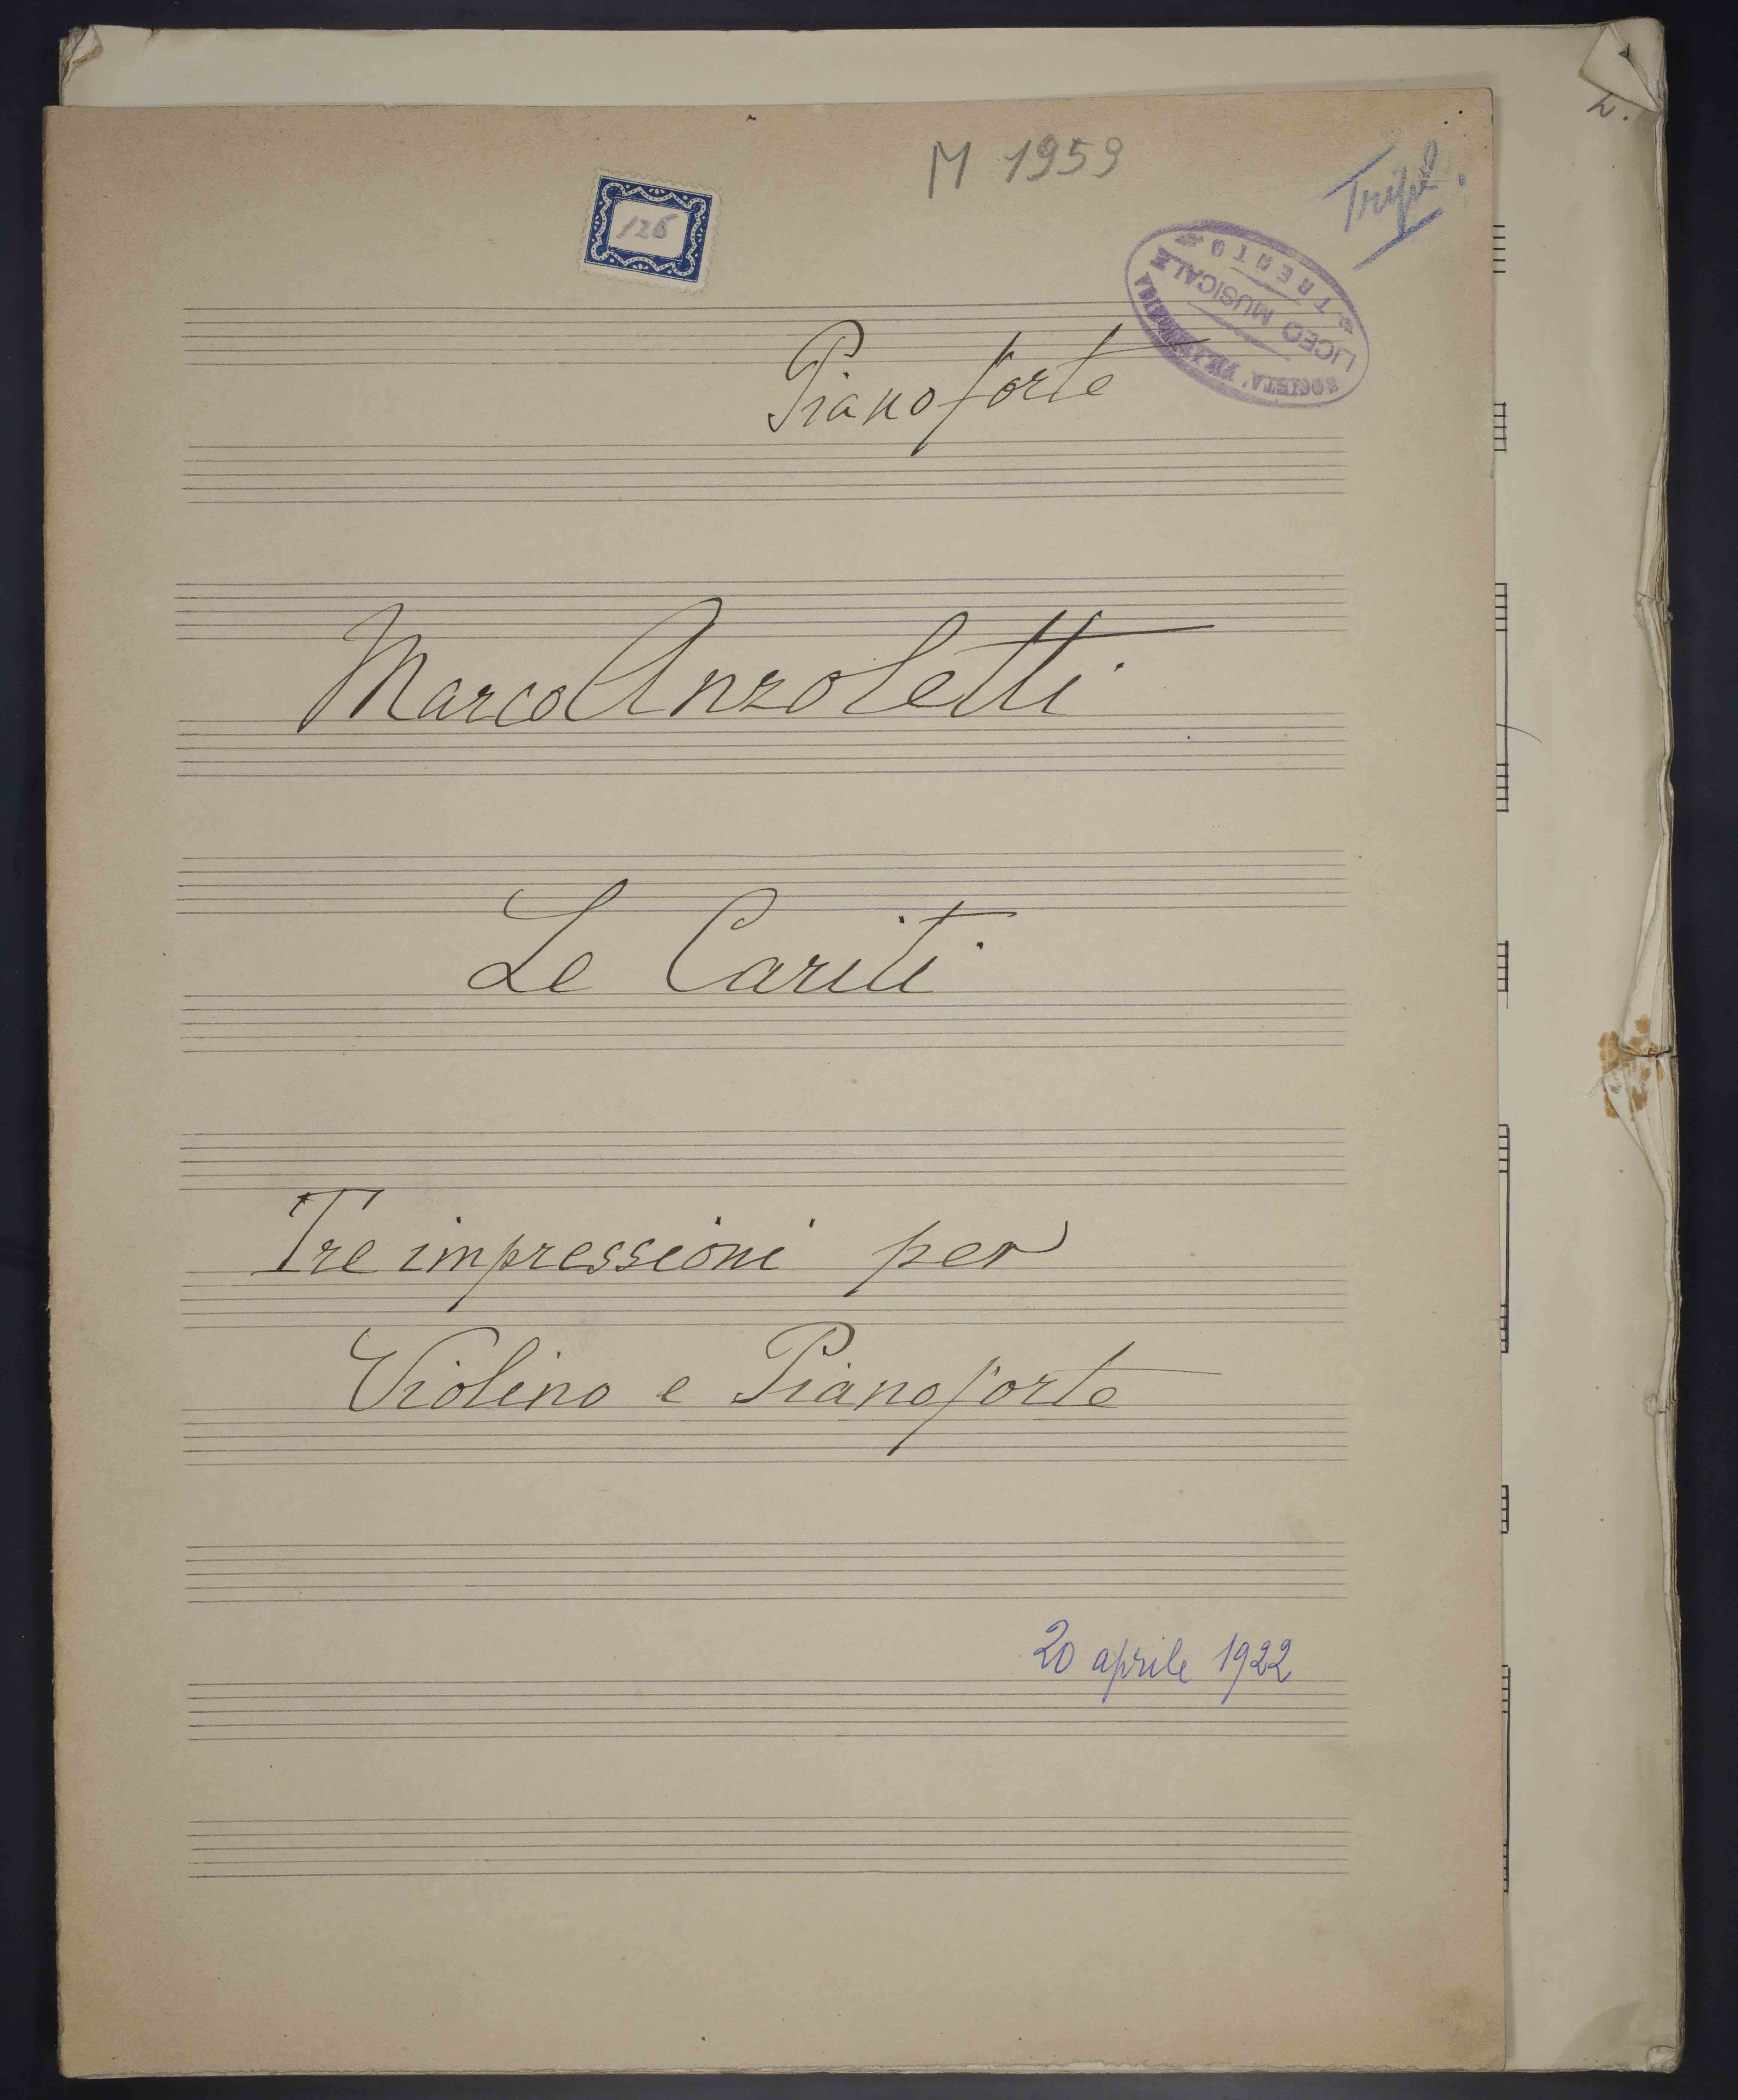 M 1959
Tripl.
126
SOCIETA' FILARMONICA
LICEO MUSICALE
TRENTO
Pianoforte
Marco Anzoletti
Le Cariti
Tre impressioni per
Violino e Pianoforte
20 aprile 1922